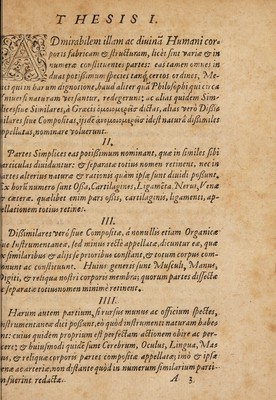 THESIS I.
ADmirabilem illam ac diuinā Humani cor-
poris fabricam & structuram, licèt sint variæ & in
numeræ constituentes partes: eas tamen omnes in
duas potissimum species tanq̃ certos ordines, Me-
dici qui in harum dignotione, haud aliter quã Philosophi qui circa
Vniuersi naturam versantur, redegerunt: ac alias quidem Sim-
plices siue Similares, à Græcis ὁμοιομερεῖς dictas, alias verò Dissi-
milares siue Compositas, ijsdē ἀνομοιομερεῖς idest naturâ dissimiles
appellatas, nominare voluerunt.
II.
Partes Simplices eas potissimum nominant, quæ in similes sibi
particulas diuiduntur: & separatæ totius nomen retinent, nec in
partes alterius naturæ & rationis quàm ipsæ sunt diuidi possunt,
Ex horū numero sunt Ossa, Cartilagines, Ligamēta, Nerui, Venæ
& cæteræ. quælibet enim pars ossis, cartilaginis, ligamenti, ap-
pellationem totius retinet.
III.
Dissimilares verò siue Compositæ, à nonullis etiam Organicæ
siue Instrumentariæ, sed minus rectè appellatæ, dicuntur eæ, quæ
ex similaribus & alijs se prioribus constant, & totum corpus com-
ponunt ac constituunt. Huius generis sunt Musculi, Manus,
Digiti, & reliqua nostri corporis membra; quorum partes dissectæ
ac separatæ totius nomen minimè retinent.
IIII.
Harum autem partium, si rursus munus ac officium spectes,
Instrumentaneæ dici possunt, eò quòd instrumenti naturam habeāt
: cuius quidem proprium est perfectam actionem obire ac per-
ficere; & buiusmodi quidē sunt Cerebrum, Oculus, Lingua, Ma
nus, & reliquæ corporis partes compositæ appellatæ; imò & ipsæ
venæ ac arteriæ, non distante quòd in numerum similarium parti-
um fuerint redactæ.
A 3